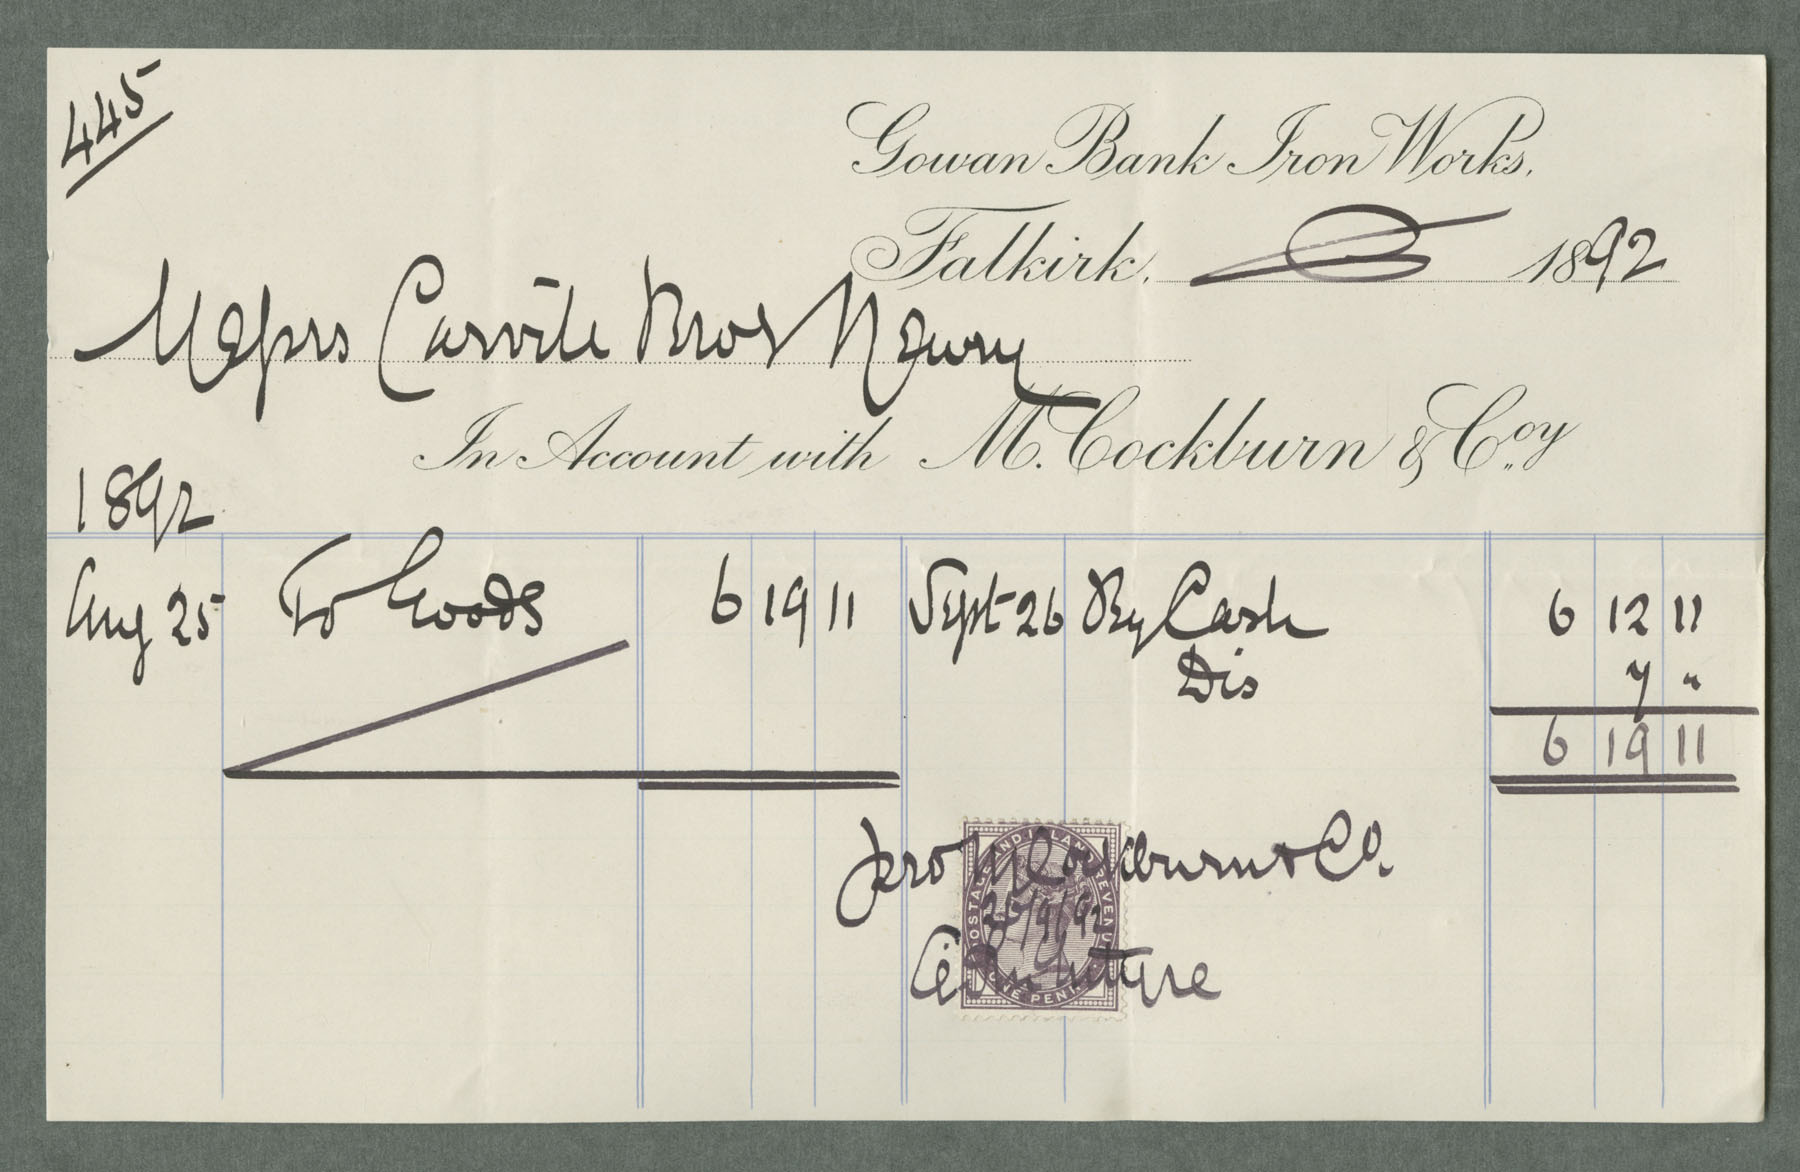 445
Gowan Bank Iron Works,
Falkirk, 1892
Messrs Carvill Bros Newry
In Account with M. Cockburn & Coy
1892
Aug 25 To Goods 6 19 11 Sept 26 By Cash 6 12 11
Dis 7 "
6 19 11
pro M Cockburn & Co.
26/9/92
POSTAGE AND INLAND REVENUE
ONE PENNY